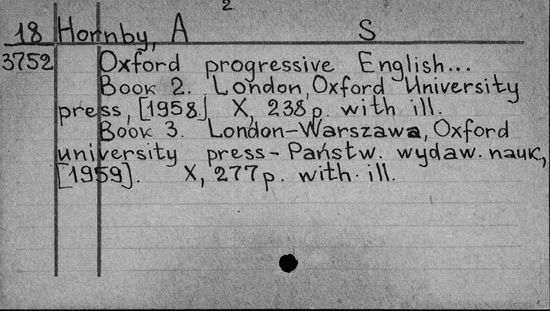 2
18 Hornby, A S
3752 Oxford progressive English...
Book 2. London, Oxford University
press, [1958] X, 238 p. with ill.
Book 3. London-Warszawa, Oxford
university press-Państw. wydaw. nauk,
[1959]. X, 277 p. with ill.